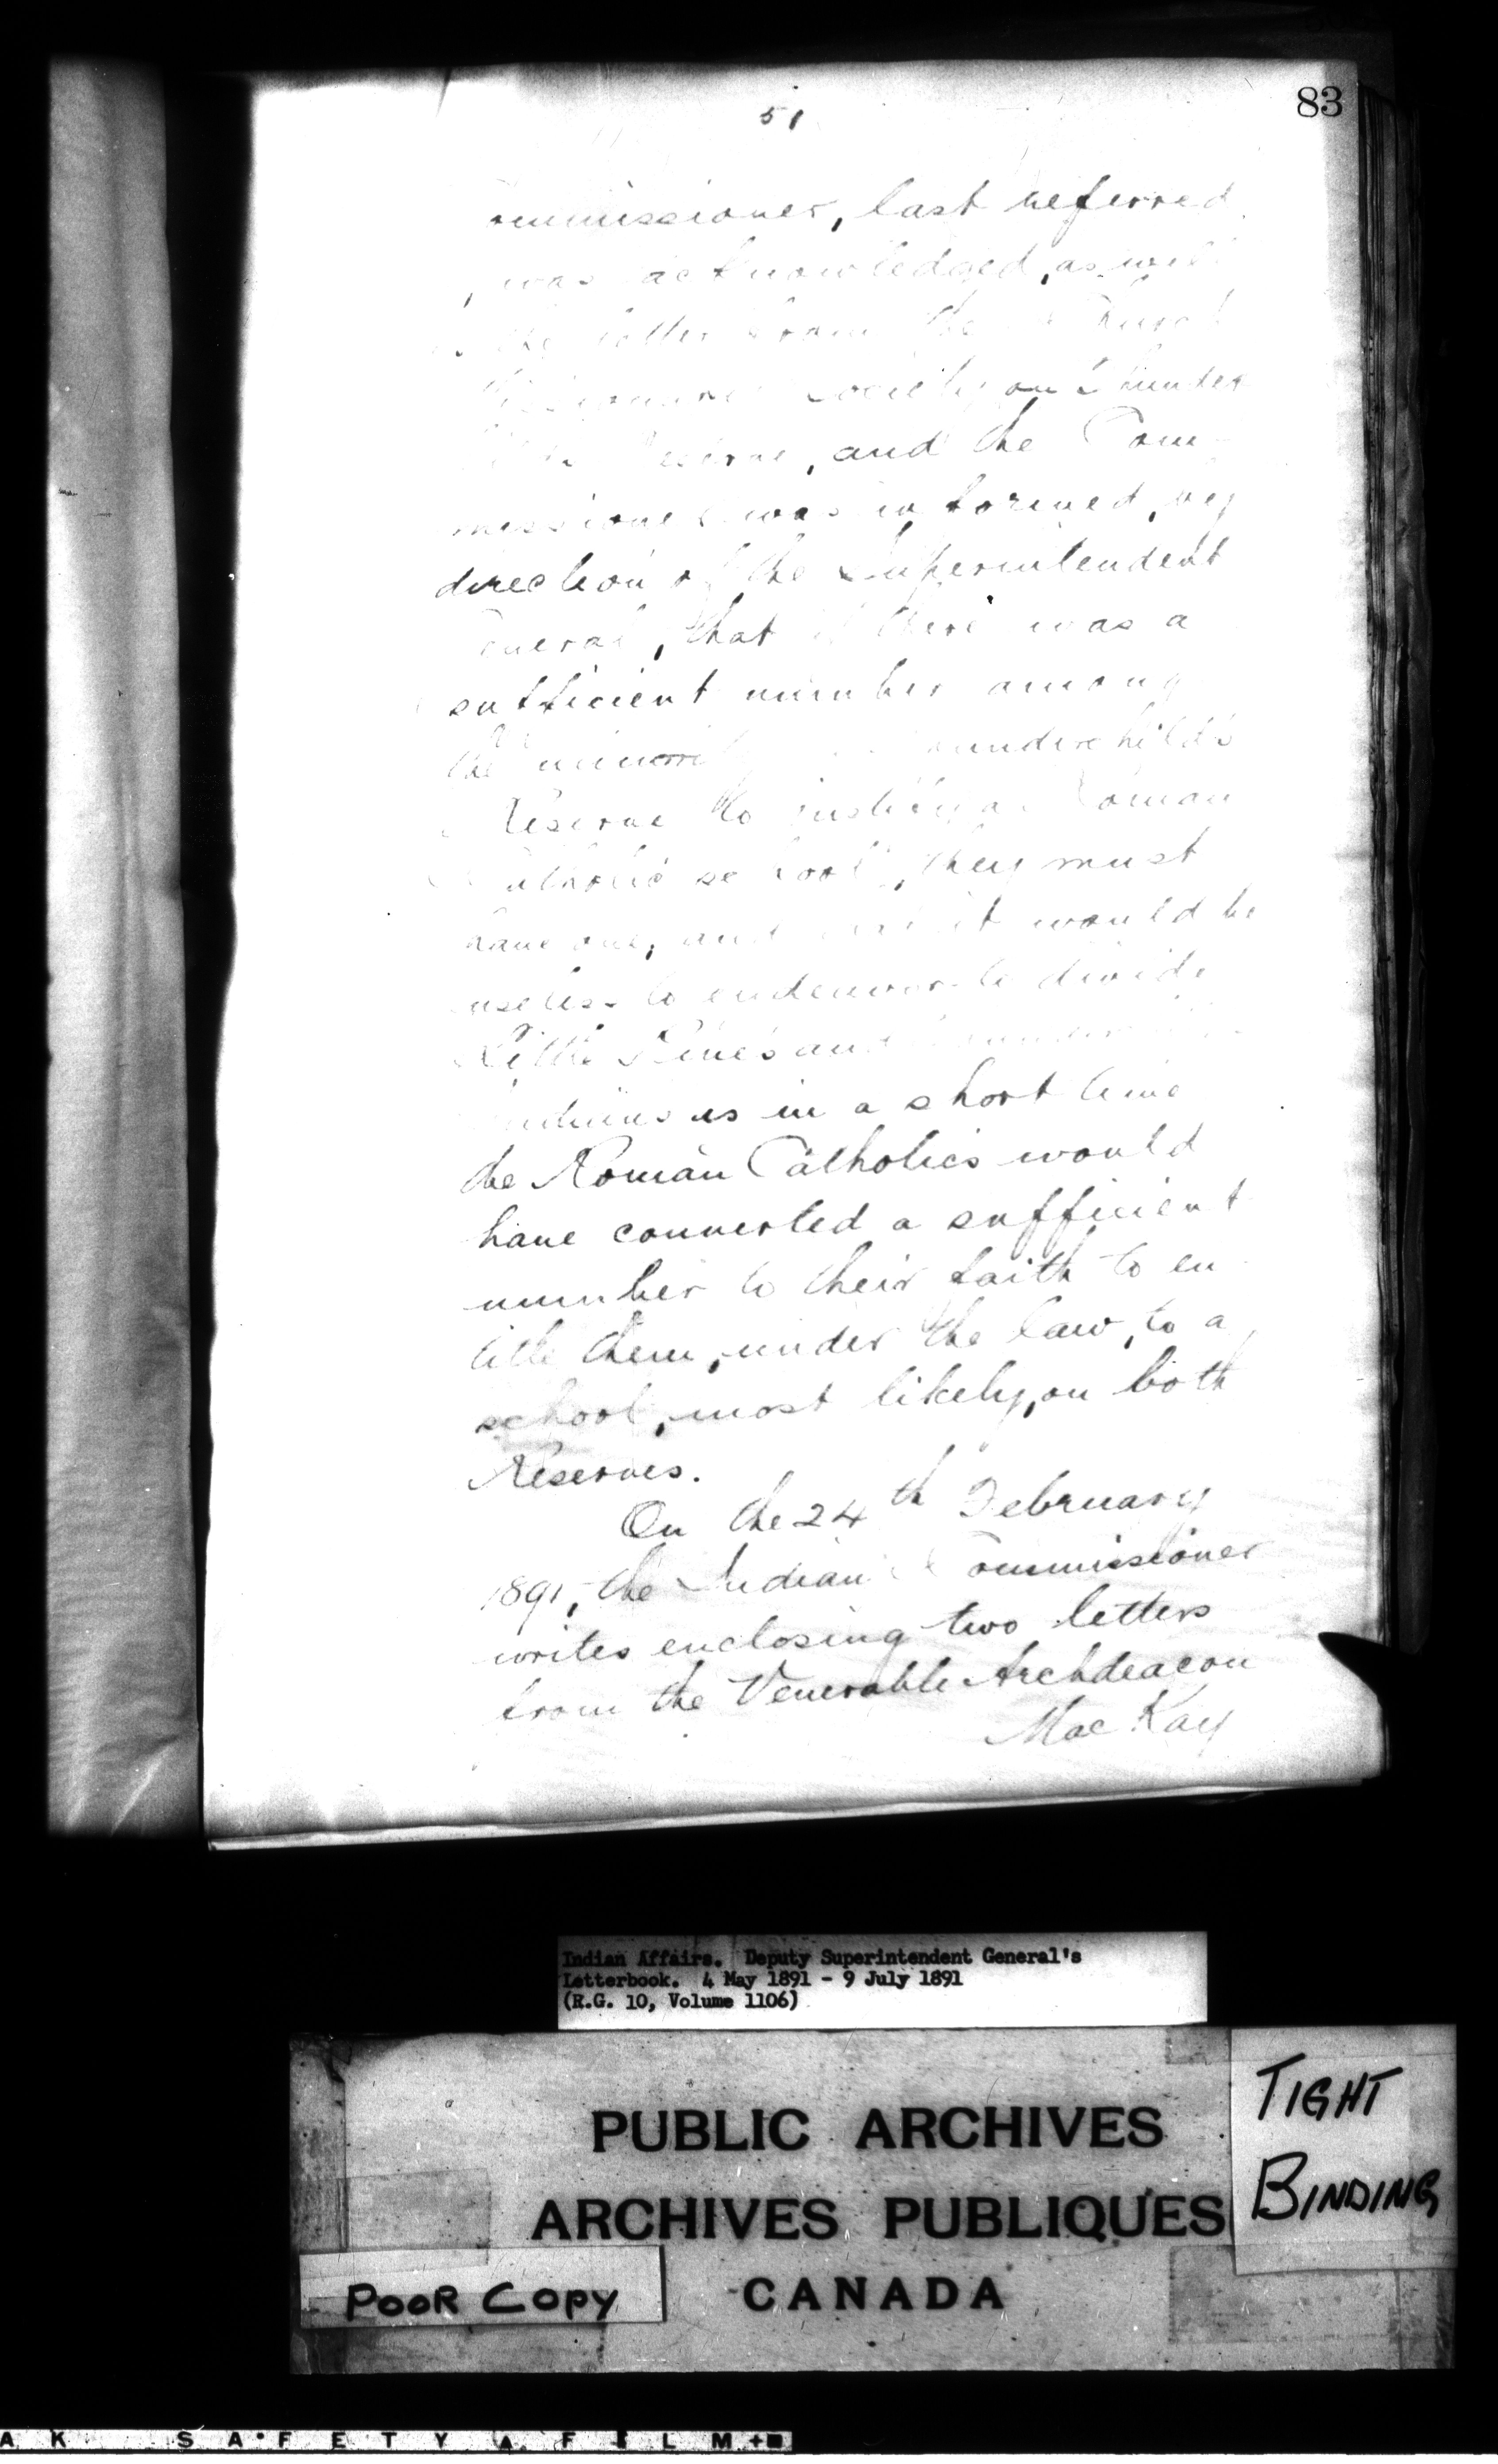 83
51
ommissioner, last referred
, was acknowledged, as well
the letter from the
Society on Thunder
, and the Com-
missioner was informed, by
direction of the Superintendent
eneral, that if there was a
sufficient number among
the minority underchild's
Reserve to justify a Roman
atholic school, they must
have one, and it would be
useless to endeavor to divide
Little Pine's and
Indians as in a short time
the Roman Catholics would
have converted a sufficient
number to their faith to en-
title them, under the law, to a
school, most likely, on both
Reserves.
On the 24th February
1891, the Indian Commissioner
writes enclosing two letters
from the Venerable Archdeacon
Mac Kay
Indian Affairs. Deputy Superintendent General's
Letterbook. 4 May 1891 - 9 July 1891
(R.G. 10, Volume 1106)
PUBLIC ARCHIVES
ARCHIVES PUBLIQUES
CANADA
TIGHT
BINDING
POOR COPY
AK SAFETY FILM